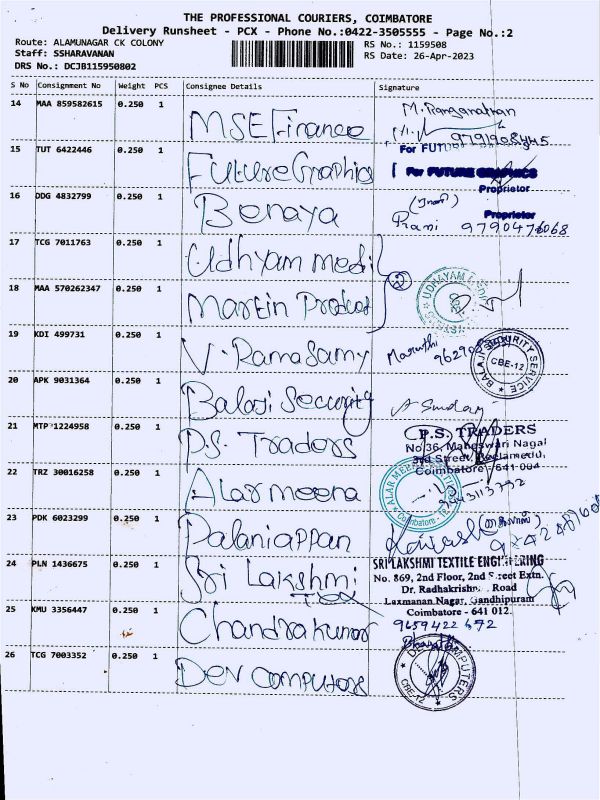 THE PROFESSIONAL COURIERS, COIMBATORE
Delivery Runsheet - PCX - Phone No.:0422-3505555 - Page No.:2
Route: ALAMUNAGAR CK COLONY
RS No.: 1159508
Staff: SSHARAVANAN
RS Date: 26-Apr-2023
DRS No.: DCJB115950802
S No Consignment No Weight PCS Consignee Details Signature
14 MAA 859582615 0.250 1 MSE Finance
M. Ranganathan
9791908445
For FUTU
15 TUT 6422446 0.250 1 Future Graphics
For FUTURE GRAPHICS
Proprietor
16 DDG 4832799 0.250 1 Benaya
Proprietor
Rami 9790476068
17 TCG 7011763 0.250 1 Udhyam medi
2
UDHAYAM
18 MAA 570262347 0.250 1 Martin Product
19 KDI 499731 0.250 1 V. Ramasamy
Maruthi
BALAJI SECURITY SERVICE
CBE-12
20 APK 9031364 0.250 1 Balaji Security
21 MTP 1224958 0.250 1 P.S. Traders
P.S. TRADERS
No.36, Maheswari Nagal
3rd Street, Peelamedu,
Coimbatore - 641 004
22 TRZ 30016258 0.250 1 Alar meena
ALAR MEENA
Coimbatore
9443113792
23 PDK 6023299 0.250 1 Palaniappan
24 PLN 1436675 0.250 1 Sri Lakshmi
Tex
SRI LAKSHMI TEXTILE ENGINEERING
No. 869, 2nd Floor, 2nd Street Extn.
Dr. Radhakrishn. . Road
Laxmanan Nagar, Gandhipuram
Coimbatore - 641 012.
25 KMU 3356447 0.250 1 Chandrakumar
9659422 672
Bharathi
26 TCG 7003352 0.250 1 DEV computors
COMPUTERS
CBE-12